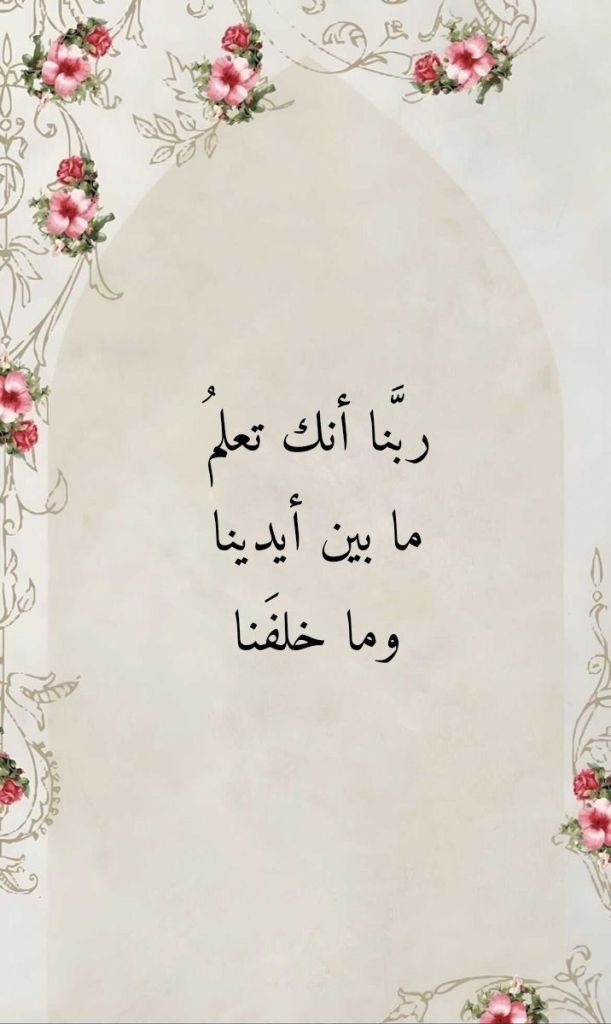 ربَّنا أنك تعلمُ
ما بين أيدينا
وما خلفَنا